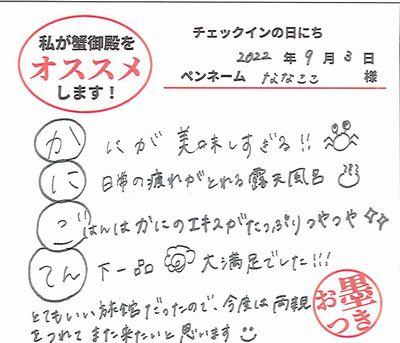 私が蟹御殿を
オススメ
します！
チェックインの日にち
2022 年 9 月 3 日
ペンネーム ななここ 様
かにが 美味しすぎる!!
に日常の疲れがとれる露天風呂
ごはんはかにのエキスがたっぷりつやつや
てん下一品 大満足でした!!!
とてもいい旅館だったので、今度は両親
をつれて また来たいと思います
墨
おつき